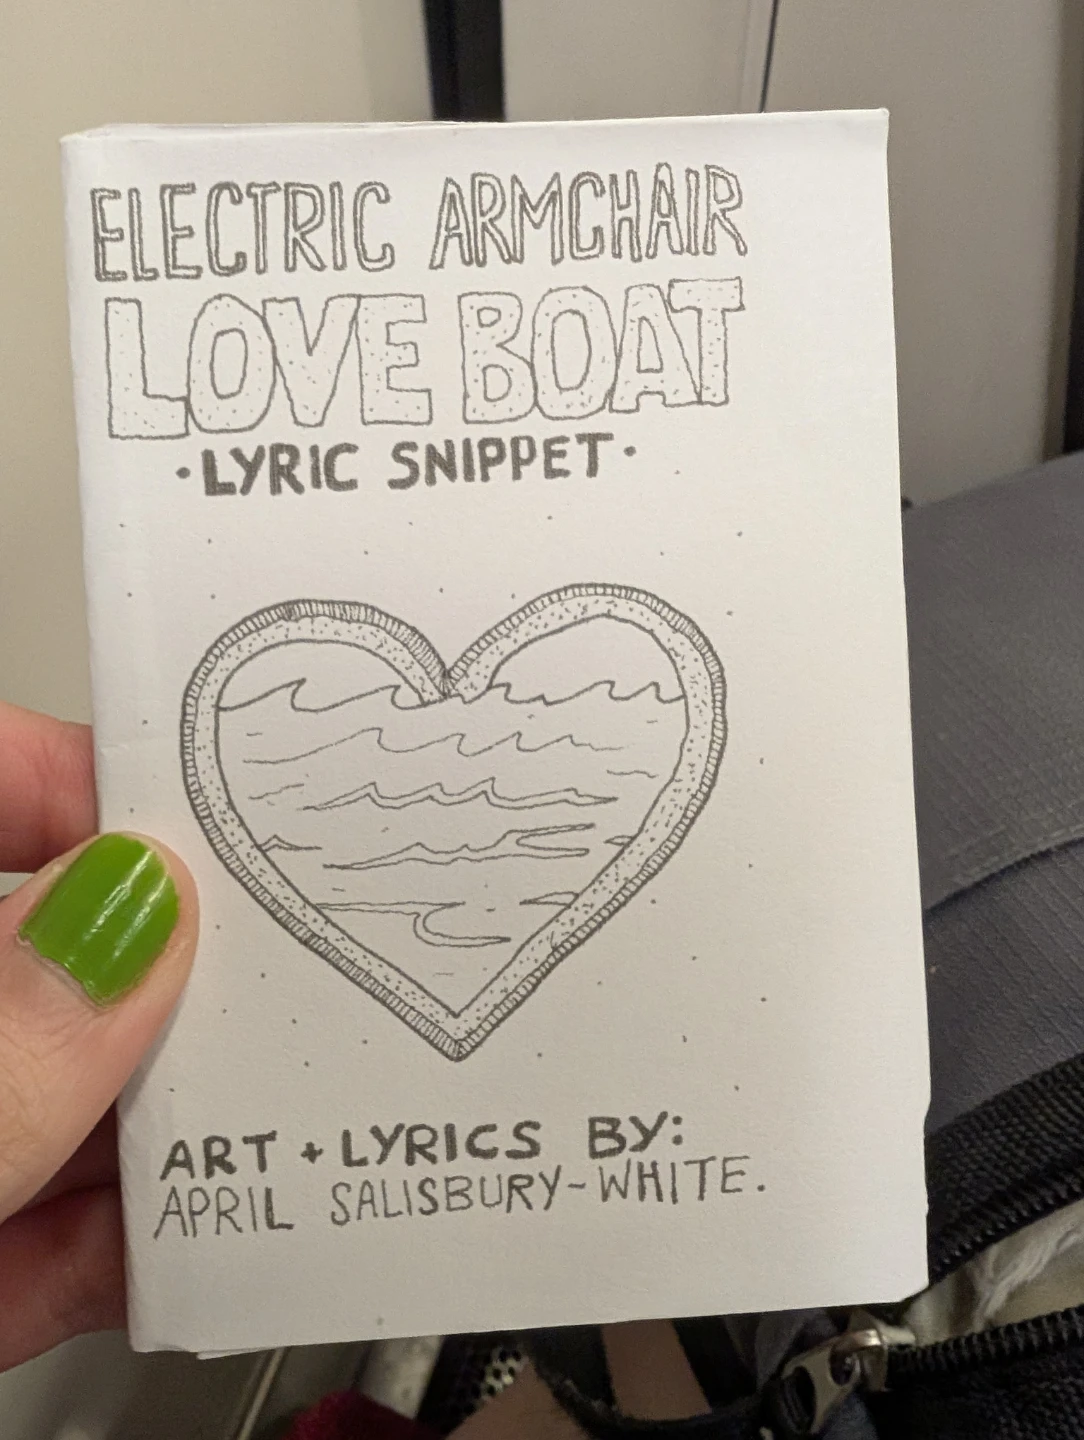 ELECTRIC ARMCHAIR
LOVE BOAT
·LYRIC SNIPPET·
ART + LYRICS BY:
APRIL SALISBURY-WHITE.